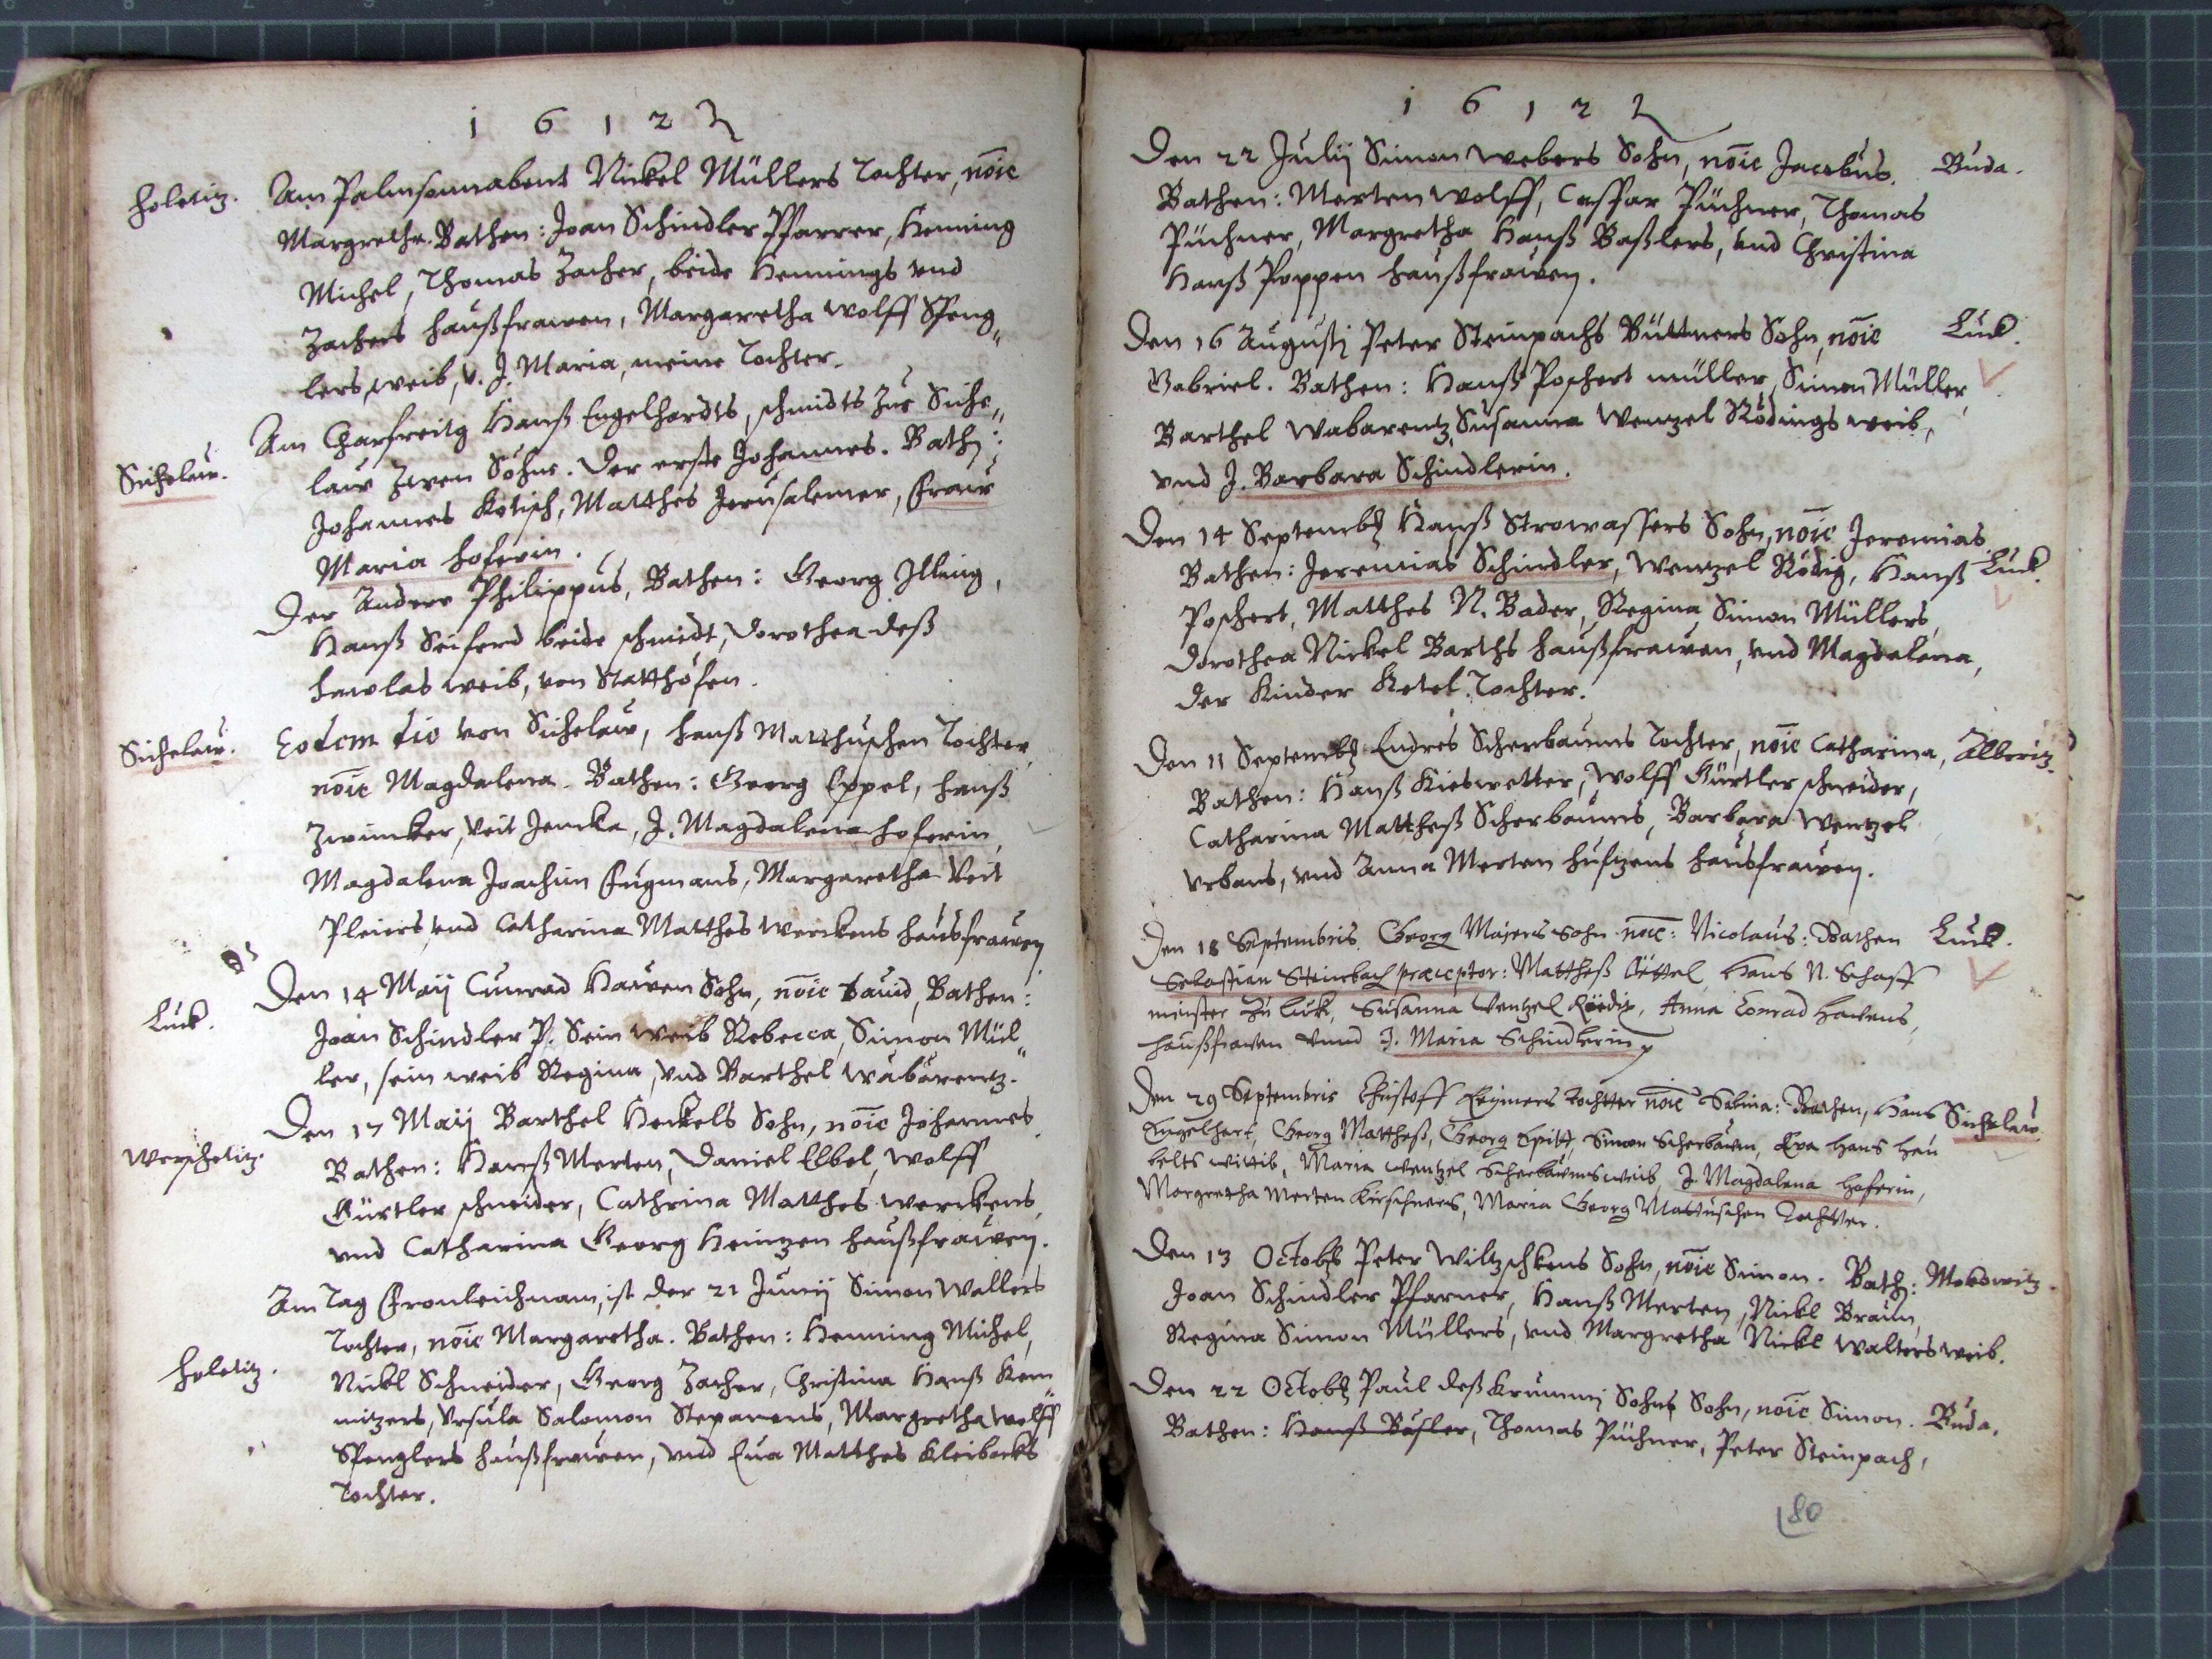 1 6 1 2
Holetiz. Am Palmsonnabent Nickel Müllers Tochter, nōie
Margretha. Bathen: Joan Schindler Pfarrer, Henning
Michel, Thomas Zacher, beide Hennings vnd
Zachers haußfrawen, Margaretha Wolff Speng„
lers weib, v. J. Maria, meine Tochter.
Am Charfreitg Hanß Engelhardts, schmidts zue Siche„
Sichelaw. law zwen Söhne. Der erste Johannes. Bathen:
Johannes Kotisch, Matthes Jerusalemer, Fraw
Maria Hoferin.
Der Andere Philippus, Bathen: Georg Illing,
Hanß Seiferd beide schmidt, Dorothea deß
Hawlas weib, von Statthöfen.
Sichelaw. Eodem die von Sichelaw, Hanß Matthuschen Tochter
nōie Magdalena. Bathen: Georg Eppel, Hanß
Zwimcker, Veit Jencka, J. Magdalena Hoferin,
Magdalena Joachim Fugmans, Margaretha Veit
Pleiers vnd Catharina Matthes Werckens hausfrawen
Luck. Den 14 Maij Cunrad Hawen Sohn, nōie Dauid, Bathen:
Joan Schindler P. Sein Weib Rebecca, Simon Mül„
ler, sein weib Regina, vnd Barthel Wabarentz.
Den 17 Maij Barthel Heckels Sohn, nōie Johannes.
Werscheditz. Bathen: Hanß Merten, Daniel Elbel, Wolff
Gürtler schneider, Cathrina Matthes Werckens,
vnd Catharina Georg Heintzen haußfrawen.
Am Tag Fronleichnam, ist der 21 Junij Simon Wallers
Tochter, nōie Margaretha. Bathen: Henning Michel,
Holetitz. Nickl Schneider, Georg Zacher, Christina Hanß Kem„
nitzers, Vrsula Salomon Stepanens, Margretha Wolff
Spenglers haußfrawen, vnd Eua Matthes Kleibecks
Tochter.
1 6 1 2
Den 22 Julij Simon Webers Sohn, nōie Jacobus. Buda.
Bathen: Merten Wolff, Caspar Püchner, Thomas
Püchner, Margretha Hanß Baßlers, vnd Christina
Hanß Poppen haußfrawen.
Den 16 Augusti Peter Steinpachs Büttners Sohn, nōie Luck.
Gabriel. Bathen: Hanß Poschert müller, Simon Müller,
Barthel Wabarentz, Susanna Wentzel Rödings weib,
vnd J. Barbara Schindlerin.
Den 14 Septemb Hanß Strowassers Sohn, nōie Jeremias.
Bathen: Jeremias Schindler, Wentzel Rödig, Hanß Luck.
Poschert, Matthes N. Bader, Regina Simon Müllers,
Dorothea Nickel Barths haußfrawen, vnd Magdalena,
der Kinder Ketel Tochter.
Den 11 Septemb Endres Scherbaums Tochter, nōie Catharina, Alberitz.
Bathen: Hanß Kieswetter, Wolff Gürtler schneider,
Catharina Mattheß Scherbaums, Barbara Wentzel
Vrbans, vnd Anna Merten Hufzens hausfrawen.
Den 18 Septembris Georg Majers Sohn nōie: Nicolaus: Bathen Luck.
Sebastian Steinbach præceptor: Mattheß Göttel, Hans N. Schaff
meister zu Luck, Susanna Wentzel Rödig, Anna Conrad Hawens,
haußfrawen vnnd J. Maria Schindlerin
Den 29 Septembris Christoff Reymers Tochtter nōie Sabina: Bathen, Hans Sichelaw.
Engelhart, Georg Mattheß, Georg Epitt, Simon Scherbawm, Eva Hans Heu
belts wittib, Maria Wentzel Scherbawmsweib J. Magdalena Hoferin,
Margretha Merten Kirschners, Maria Georg Mattuschen Tochtter.
Den 13 Octobs Peter Wiltzschkens Sohn, nōie Simon. Bath: Mokowitz.
Joan Schindler Pfarrer, Hanß Merten, Nickl Braun,
Regina Simon Müllers, vnd Margretha Nickl Walters weib.
Den 22 Octob Paul deß Krummen Sohns Sohn, nōie Simon. Buda.
Bathen: Hanß Basler, Thomas Püchner, Peter Steinpach,
80